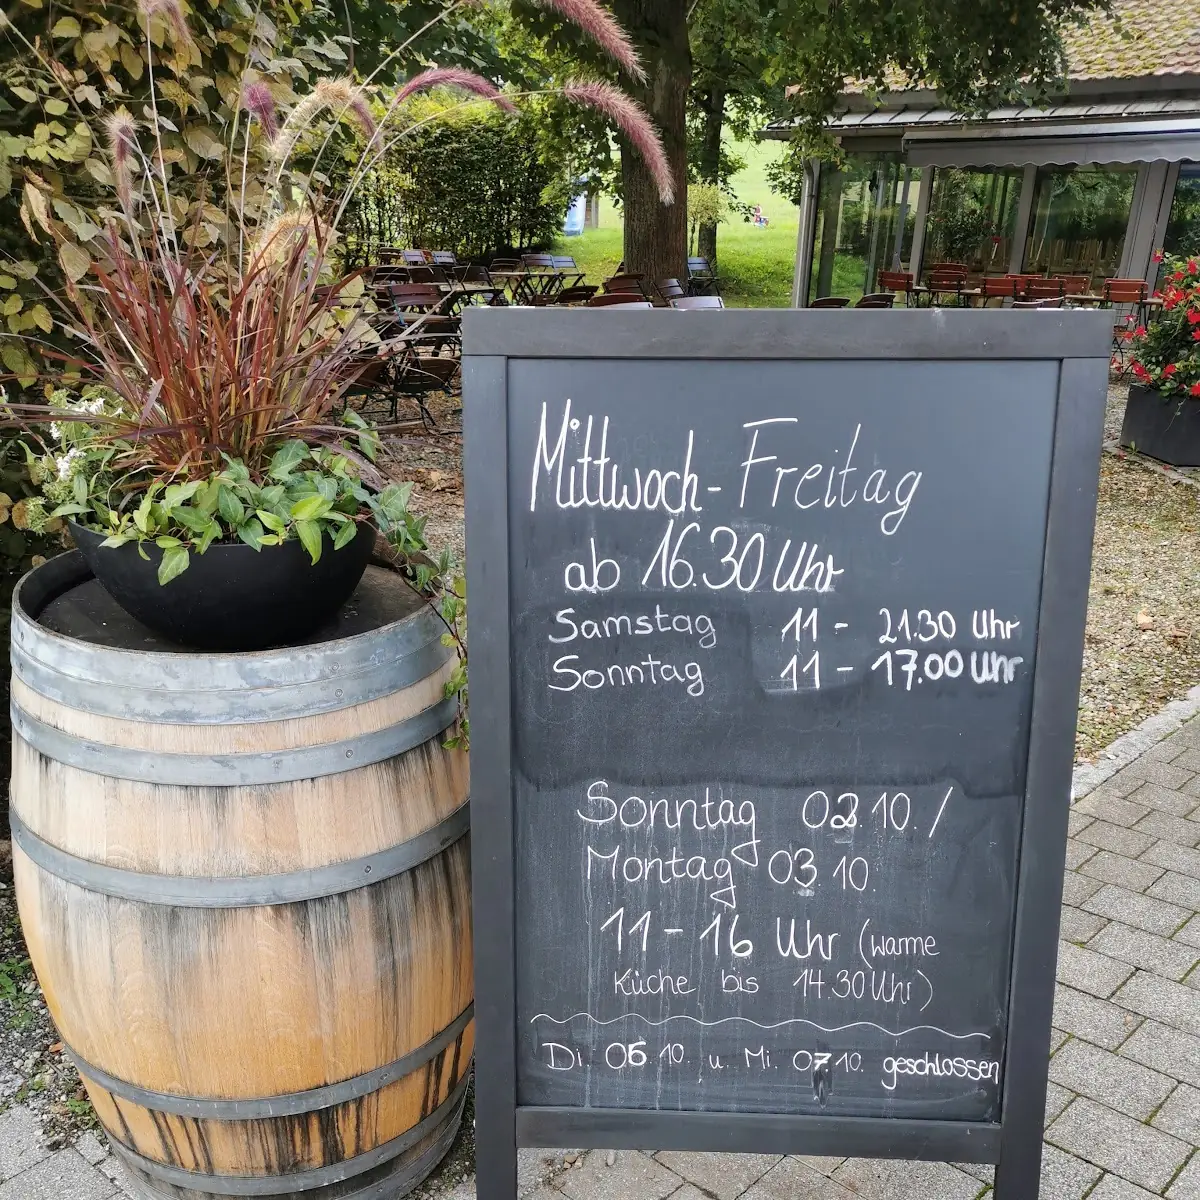 Mittwoch - Freitag
ab 16.30 Uhr
Samstag 11 - 21.30 Uhr
Sonntag 11 - 17.00 Uhr
Sonntag 02.10. /
Montag 03 10.
11 - 16 Uhr (warme
Küche bis 14.30 Uhr)
Di. 10. u. Mi. 10. geschlossen